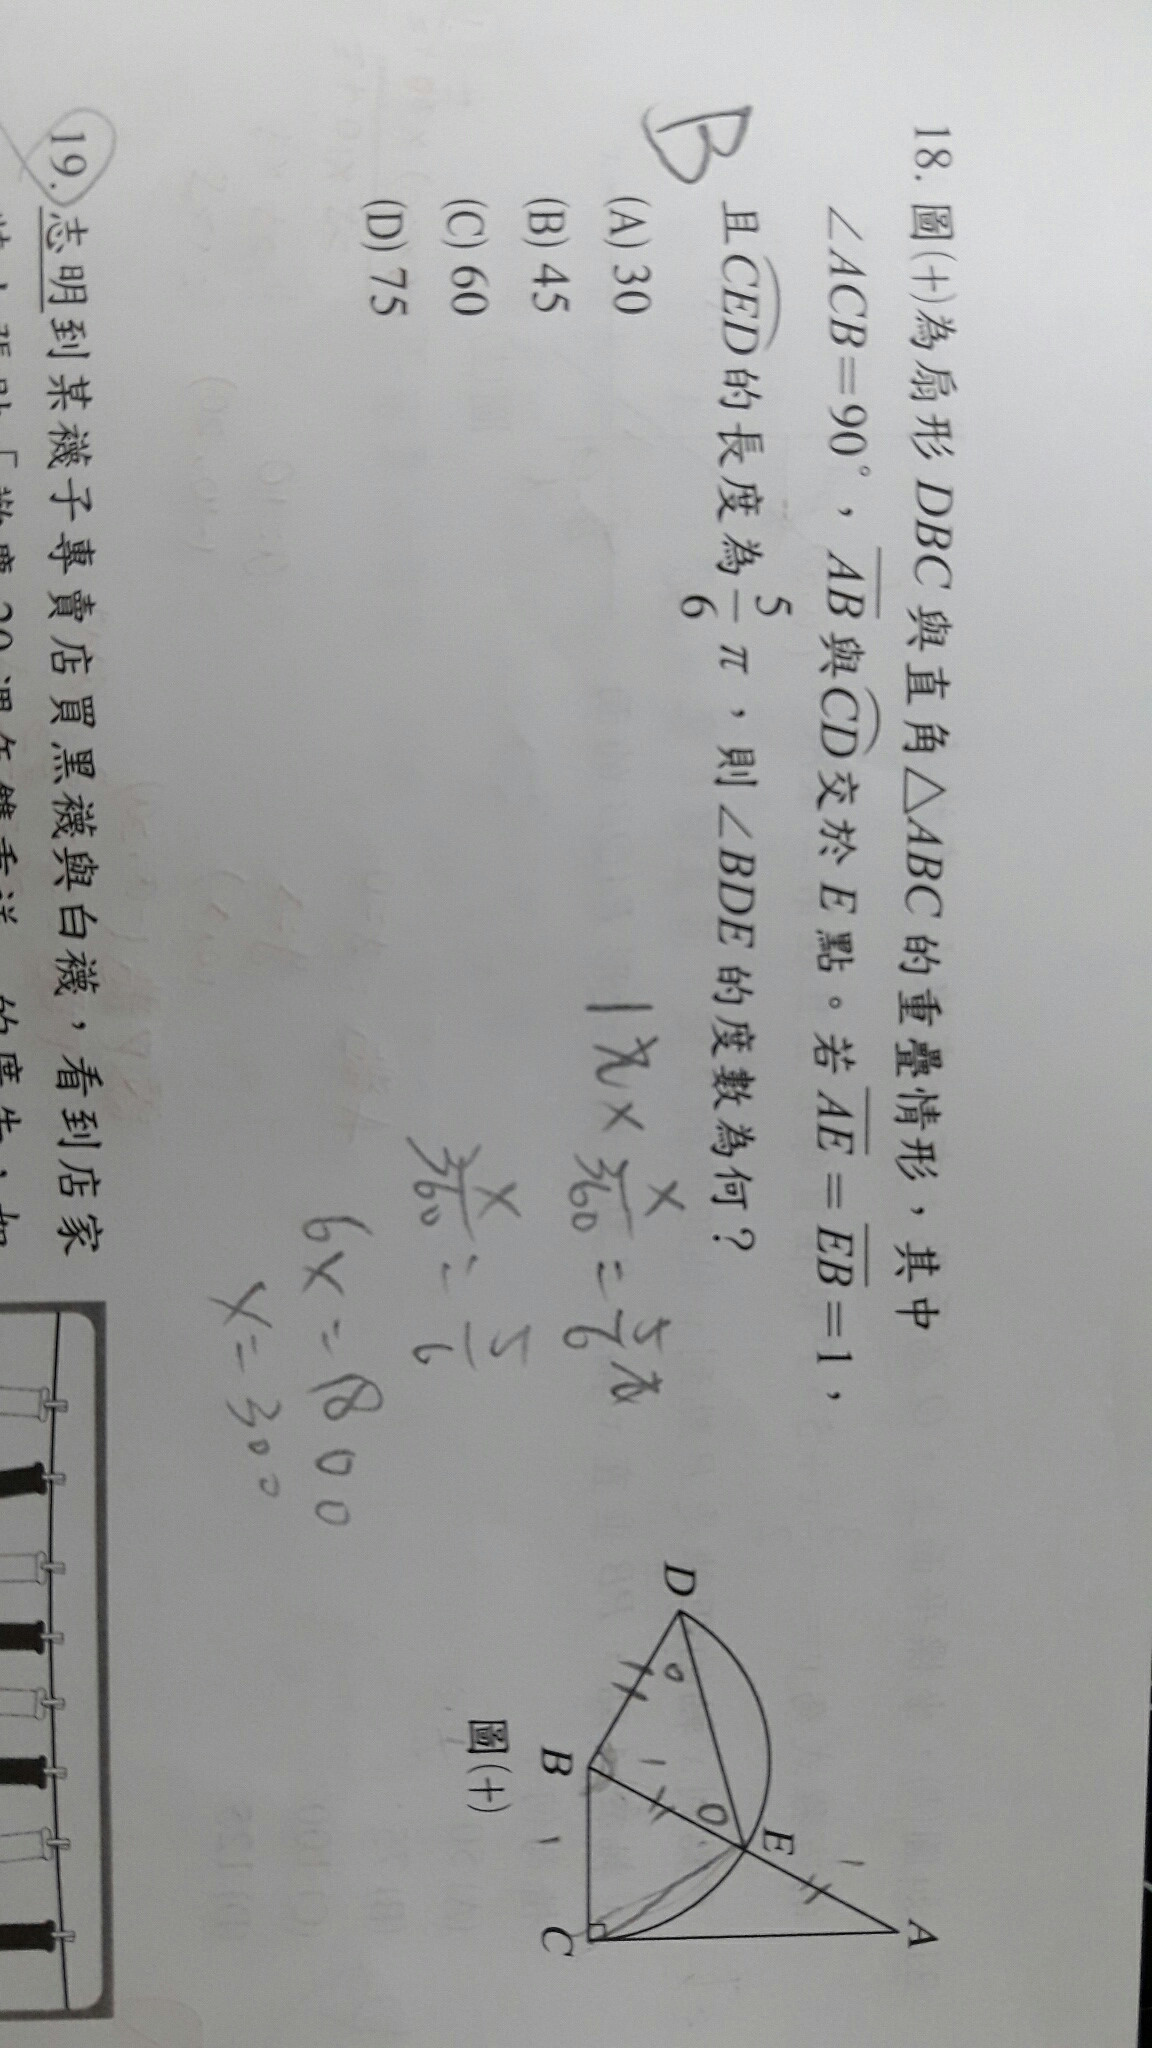 18. 圖(十)為扇形DBC與直角△ABC的重疊情形，其中
∠ACB=90°，AB與CD交於E點。若AE=EB=1，
B
且CED的長度為5/6π，則∠BDE的度數為何？
(A) 30
(B) 45
(C) 60
(D) 75
x/360 = 5/6
6x = 1800
x = 300
A
E
D
B
C
1
1
1
圖(十)
19. 志明到某襪子專賣店買黑襪與白襪，看到店家